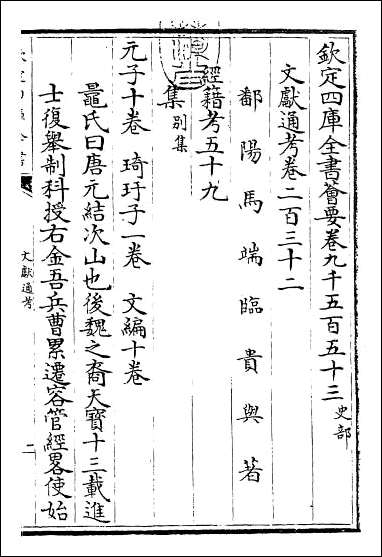 欽定四庫全書薈要卷九千五百五十三 史部
文獻通考卷二百三十二
鄱陽馬端臨貴與著
經籍考五十九
集 别集
元子十卷 琦玗子一卷 文編十卷
鼂氏曰唐元結次山也後魏之裔天寶十三載進
士復舉制科授右金吾兵曹累遷容管經畧使始
文獻通考